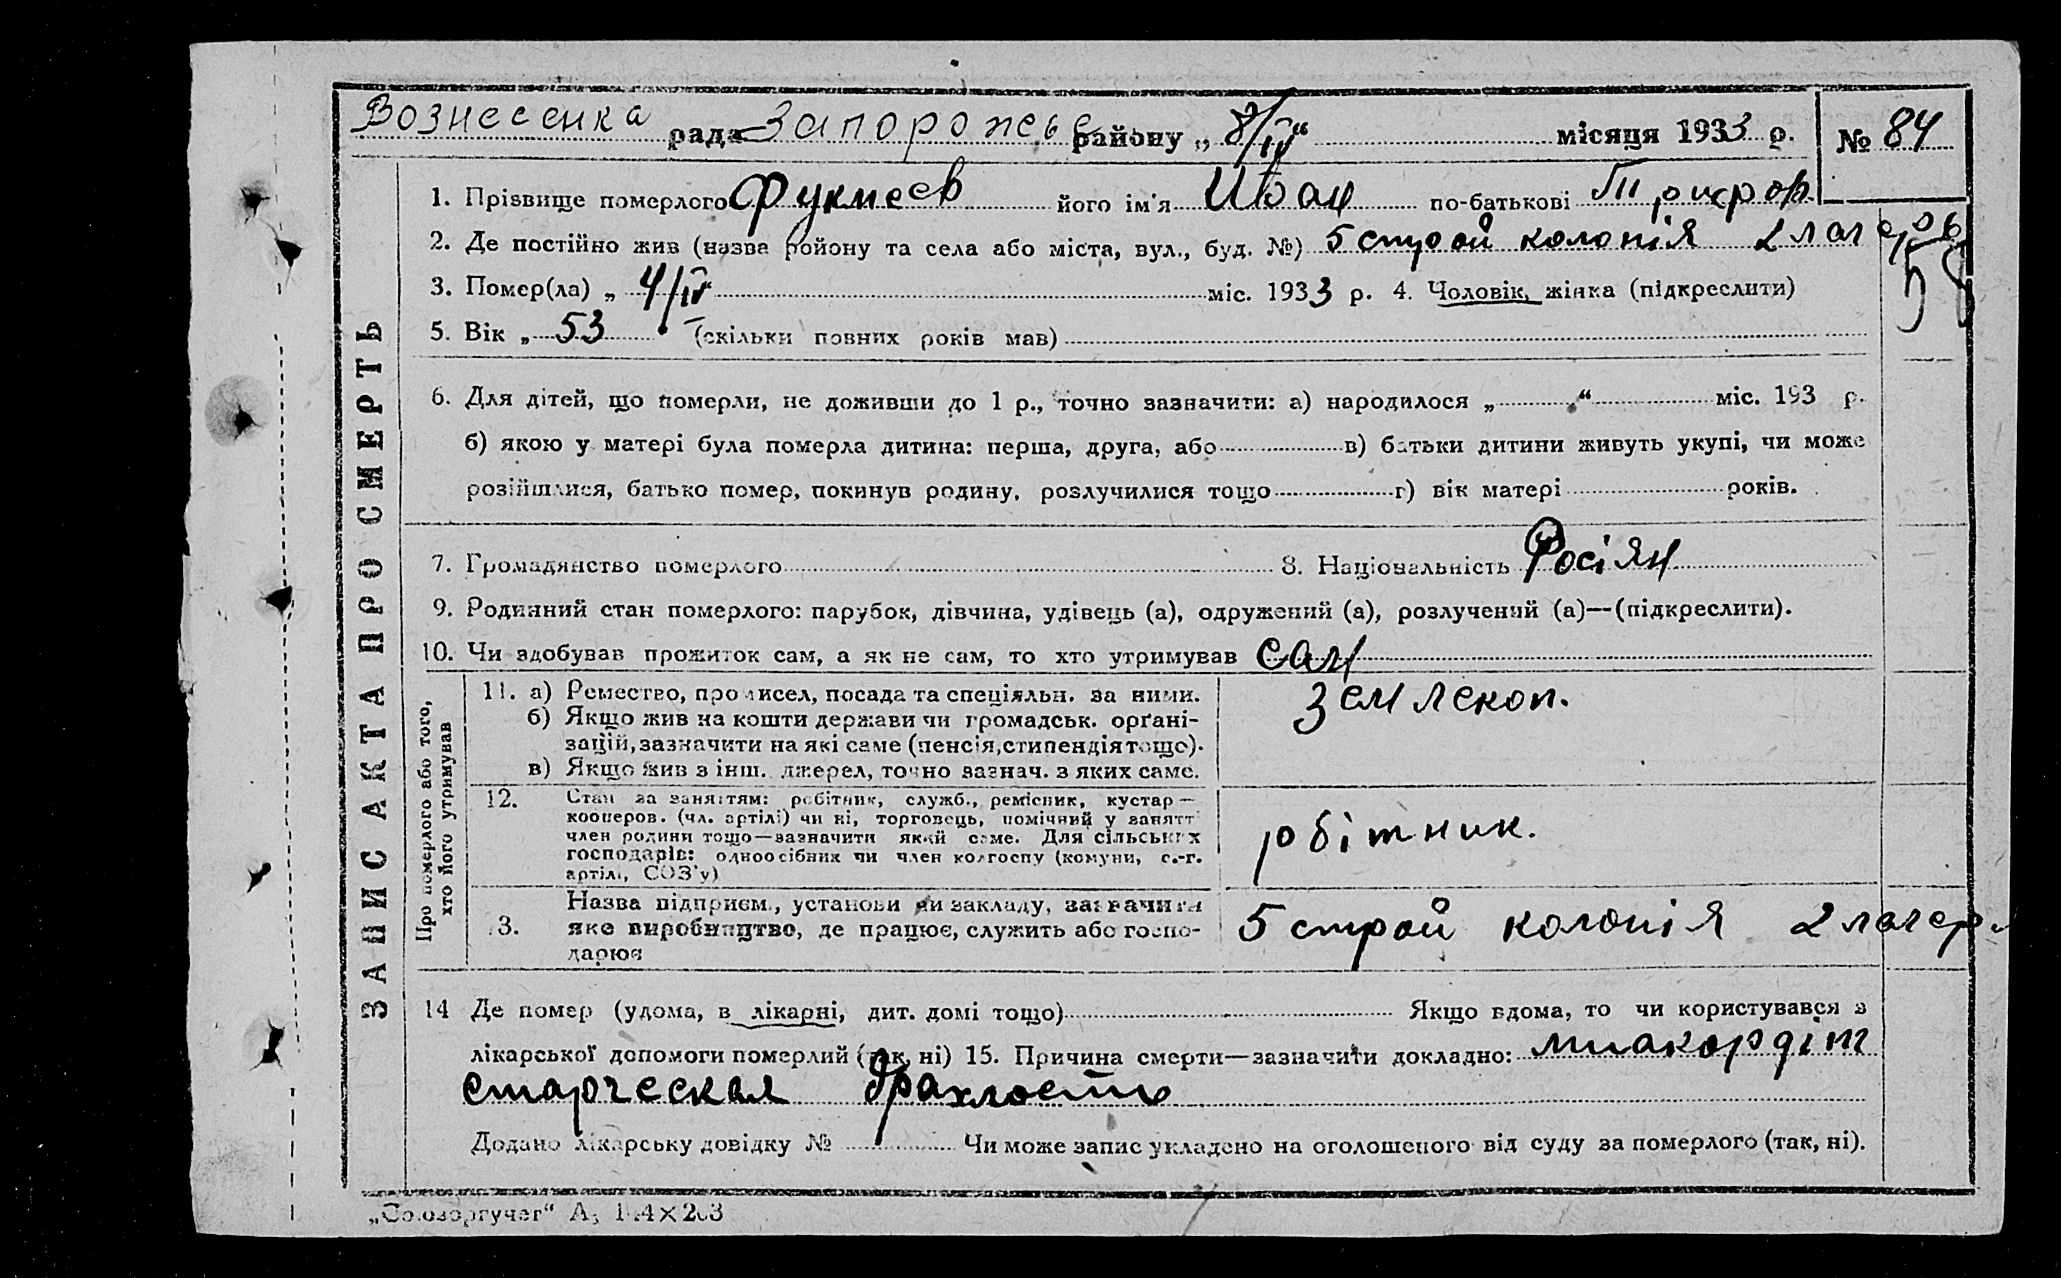 Вознесенка рада Запорожье району „ 8/IV “ місяця 1933 р. № 84
ЗАПИС АКТА ПРО СМЕРТЬ
1. Прізвище померлого його ім'я Иван по-батькові
2. Де постійно жив (назва району та села або міста, вул., буд. №) 5 строй колонія 2 лагерь
3. Помер(ла) „ 4/IV міс. 1933 р. 4. Чоловік, жінка (підкреслити)
5. Вік „ 53 (скільки повних років мав)
6. Для дітей, що померли, не доживши до 1 р., точно зазначити: а) народилося „ “ міс. 193 р.
б) якою у матері була померла дитина: перша, друга, або в) батьки дитини живуть укупі, чи може
розійшлися, батько помер, покинув родину, розлучилися тощо г) вік матері років.
7. Громадянство померлого 8. Національність Росіян
9. Родинний стан померлого: парубок, дівчина, удівець (а), одружений (а), розлучений (а)—(підкреслити).
10. Чи здобував прожиток сам, а як не сам, то хто утримував сам
Про померлого або того,
хто його утримував
11. а) Ремество, промисел, посада та спеціяльн. за ними. землекоп.
б) Якщо жив на кошти держави чи громадськ. орґані-
зацій, зазначити на які саме (пенсія, стипендія тощо).
в) Якщо жив з інш. джерел, точно зазнач. з яких саме.
12. Стан за заняттям: робітник, служб., ремісник, кустар —
кооперов. (чл. артілі) чи ні, торговець, помічний у занятт
член родини тощо—зазначити який саме. Для сільських
господарів: одноосібник чи член колгоспу (комуни, с.-г.
артілі, СОЗ'у)
робітник.
Назва підприєм., установи чи закладу, зазначити
13. яке виробництво, де працює, служить або госпо-
дарює
5 строй колонія 2 лагер.
14 Де помер (удома, в лікарні, дит. домі тощо) Якщо вдома, то чи користувався з
лікарської допомоги померлий (так, ні) 15. Причина смерти—зазначити докладно: миакордіт
старческая драхлость
Додано лікарську довідку № Чи може запис укладено на оголошеного від суду за померлого (так, ні).
„Союзоргучет“